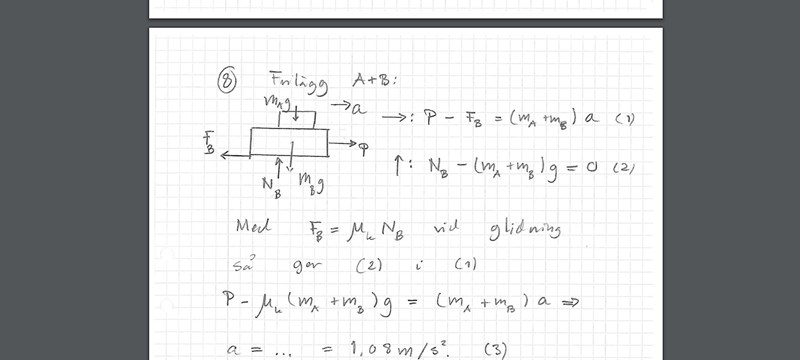 ⑧ Frilägg A+B:
m_A g → a
→: P − F_B = (m_A + m_B) a (1)
F_B
P
↑: N_B − (m_A + m_B) g = 0 (2)
N_B m_B g
Med F_B = μ_k N_B vid glidning
så ger (2) i (1)
P − μ_k (m_A + m_B) g = (m_A + m_B) a ⇒
a = ... = 1,08 m/s². (3)